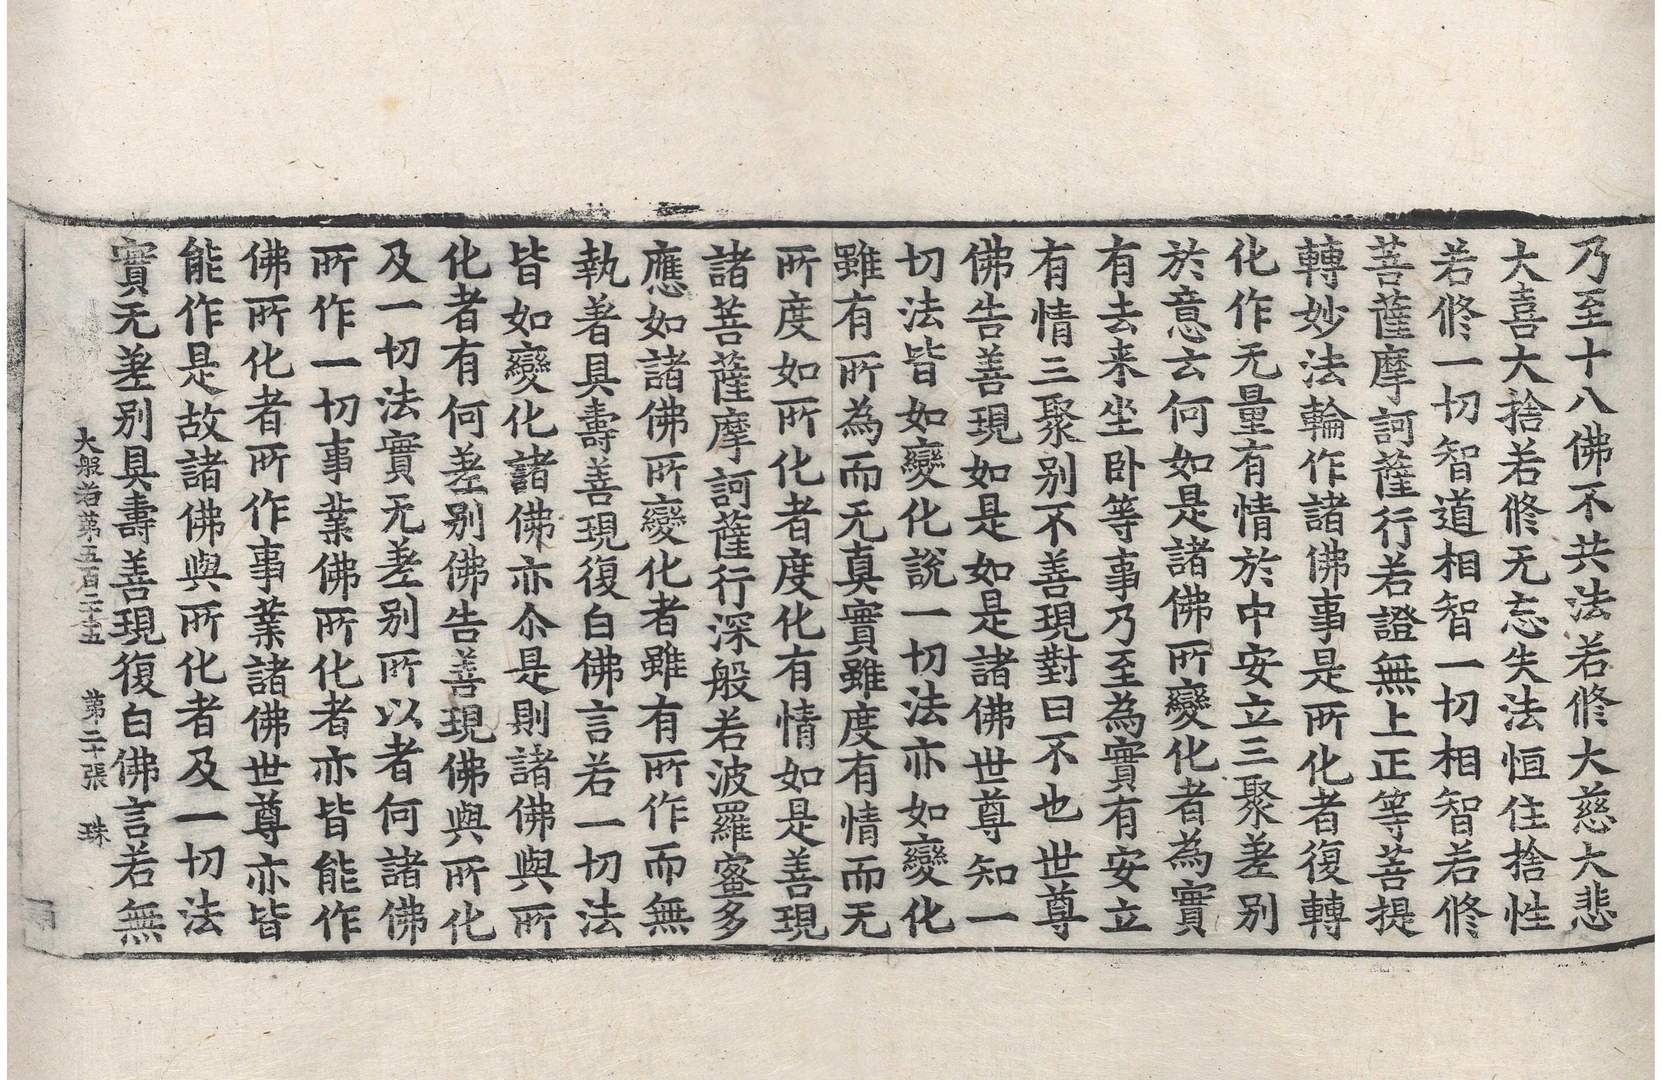 乃至十八佛不共法若修大慈大悲
大喜大捨若修无忘失法恒住捨性
若修一切智道相智一切相智若修
菩薩摩訶薩行若證無上正等菩提
轉妙法輪作諸佛事是所化者復轉
化作无量有情於中安立三聚差别
於意云何如是諸佛所變化者為實
有去来坐卧等事乃至為實有安立
有情三聚别不善現對曰不也世尊
佛告善現如是如是諸佛世尊知一
切法皆如變化說一切法亦如變化
雖有所為而无真實雖度有情而无
所度如所化者度化有情如是善現
諸菩薩摩訶薩行深般若波羅蜜多
應如諸佛所變化者雖有所作而無
執著具壽善現復白佛言若一切法
皆如變化諸佛亦尒是則諸佛與所
化者有何差别佛告善現佛與所化
及一切法實无差别所以者何諸佛
所作一切事業佛所化者亦皆能作
佛所化者所作事業諸佛世尊亦皆
能作是故諸佛與所化者及一切法
實无差别具壽善現復白佛言若無
大般若第五百二十五 第二十張 珠